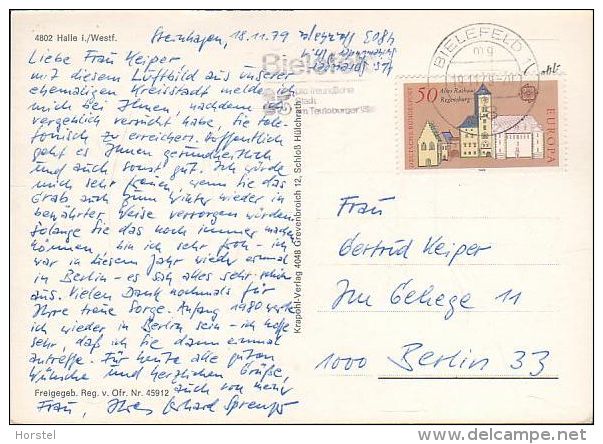 4802 Halle i./Westf.
Steinhagen, 18.11.79
Liebe Frau Keiper
mit diesem Luftbild aus unserer
ehemaligen Kreisstadt melde ich
mich bei Ihnen, nachdem ich
vergeblich versucht habe, Sie tele-
fonisch zu erreichen. Hoffentlich
geht es Ihnen gesundheitlich
und auch sonst gut. Ich würde
mich sehr freuen, wenn Sie das
Grab auch zum Winter wieder in
bewährter Weise versorgen würden.
Solange Sie das noch immer machen
können, bin ich sehr froh - ich
war in diesem Jahr wieder einmal
in Berlin - es sah alles sehr schön
aus. Vielen Dank nochmals für
Ihre treue Sorge. Anfang 1980 werde
ich wieder in Berlin sein - ich hoffe
sehr, daß ich Sie dann einmal
antreffe. Für heute alle guten
Wünsche und herzlichen Grüße,
auch von meiner
Frau, Ihres Gerhard Sprenger
Freigegeb. Reg. v. Ofr. Nr. 45912
Krapohl-Verlag 4048 Grevenbroich 12, Schloß Hülchrath
4803 Steinhagen
Bielefeld
die freundliche
Stadt
am Teutoburger Wald
BIELEFELD 1
mg
19.11.79
50
Altes Rathaus
Regensburg
DEUTSCHE BUNDESPOST
EUROPA
CEPT
Frau
Gertrud Keiper
Im Gehege 11
1000 Berlin 33
Horstel
delcampe.net